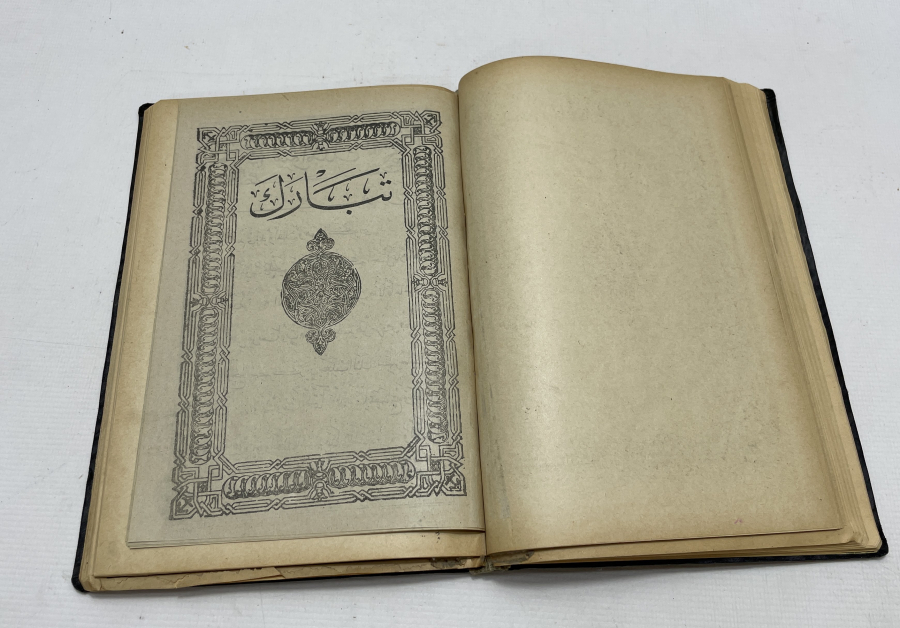 تَبَارَكَ